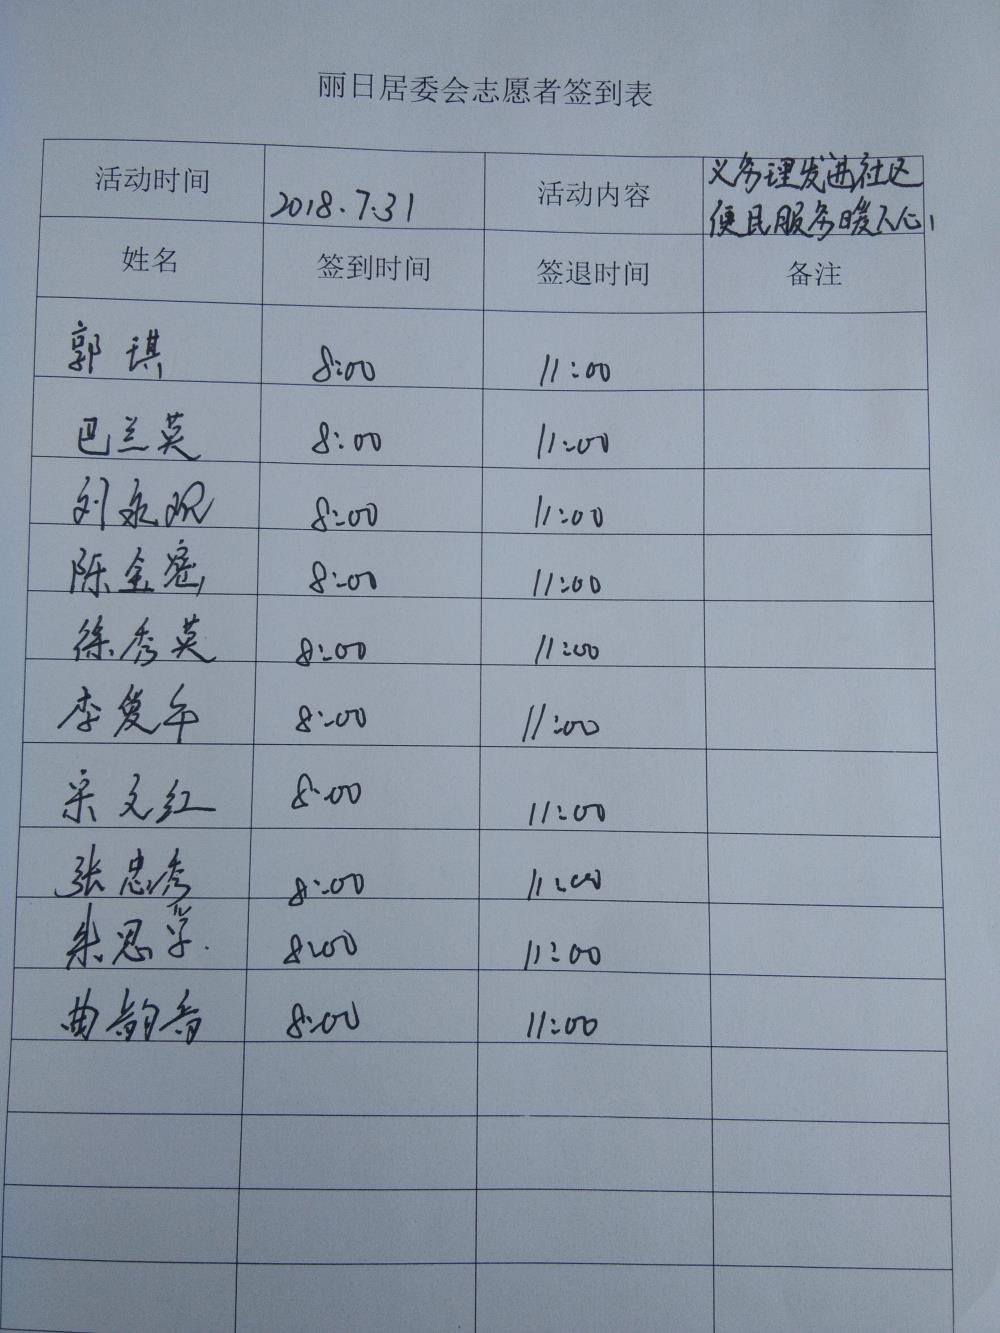 丽日居委会志愿者签到表
活动时间 2018.7.31 活动内容 义务理发进社区
便民服务暖人心
姓名 签到时间 签退时间 备注
郭琪 8:00 11:00
巴兰英 8:00 11:00
刘永观 8:00 11:00
陈金 8:00 11:00
徐秀英 8:00 11:00
李复午 8:00 11:00
宋文红 8:00 11:00
张忠秀 8:00 11:00
朱思 8:00 11:00
曲韵香 8:00 11:00